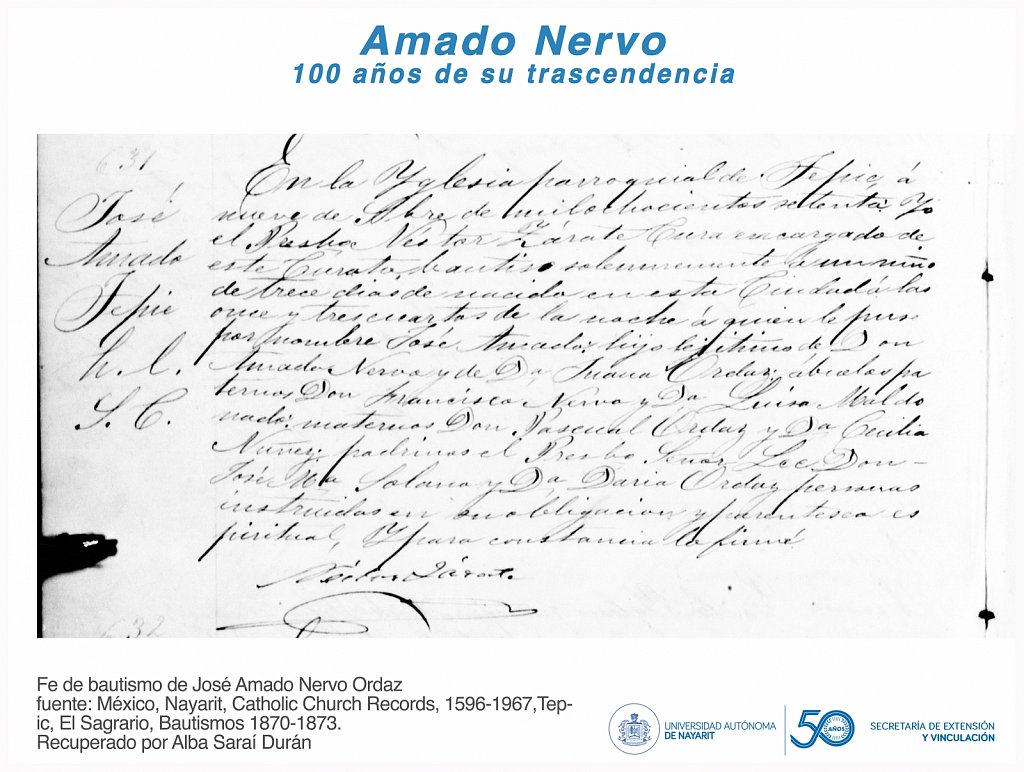 Amado Nervo
100 años de su trascendencia
631
José
Amado
Tepic
h. l.
S. C.
En la Yglesia parroquial de Tepic, á
nueve de Sbre de mil ochocientos setenta. Yo
el Presbo. Néstor Zárate Cura encargado de
este Curato, bautisé solemnemente á un niño
de trece dias de nacido en esta Ciudad á las
once y tres cuartos de la noche á quien le puse
por nombre José Amado: hijo lejitimo de Don
Amado Nervo y de Da. Juana Ordaz; abuelos pa
ternos Don Francisco Nervo y Da Luisa Maldo
nado: maternos Don Pascual Ordaz y Da Cecilia
Nuñez; padrinos el Presbo. Señor Lic Don–
José Ma Solano y Da Daria Ordaz personas
instruidas en su obligacion y parentesco es
piritual, Y para constancia lo firmé.
Néstor Zárate
632
Fe de bautismo de José Amado Nervo Ordaz
fuente: México, Nayarit, Catholic Church Records, 1596-1967,Tep-
ic, El Sagrario, Bautismos 1870-1873.
Recuperado por Alba Saraí Durán
UNIVERSIDAD AUTÓNOMA
DE NAYARIT
50 AÑOS
SECRETARÍA DE EXTENSIÓN
Y VINCULACIÓN